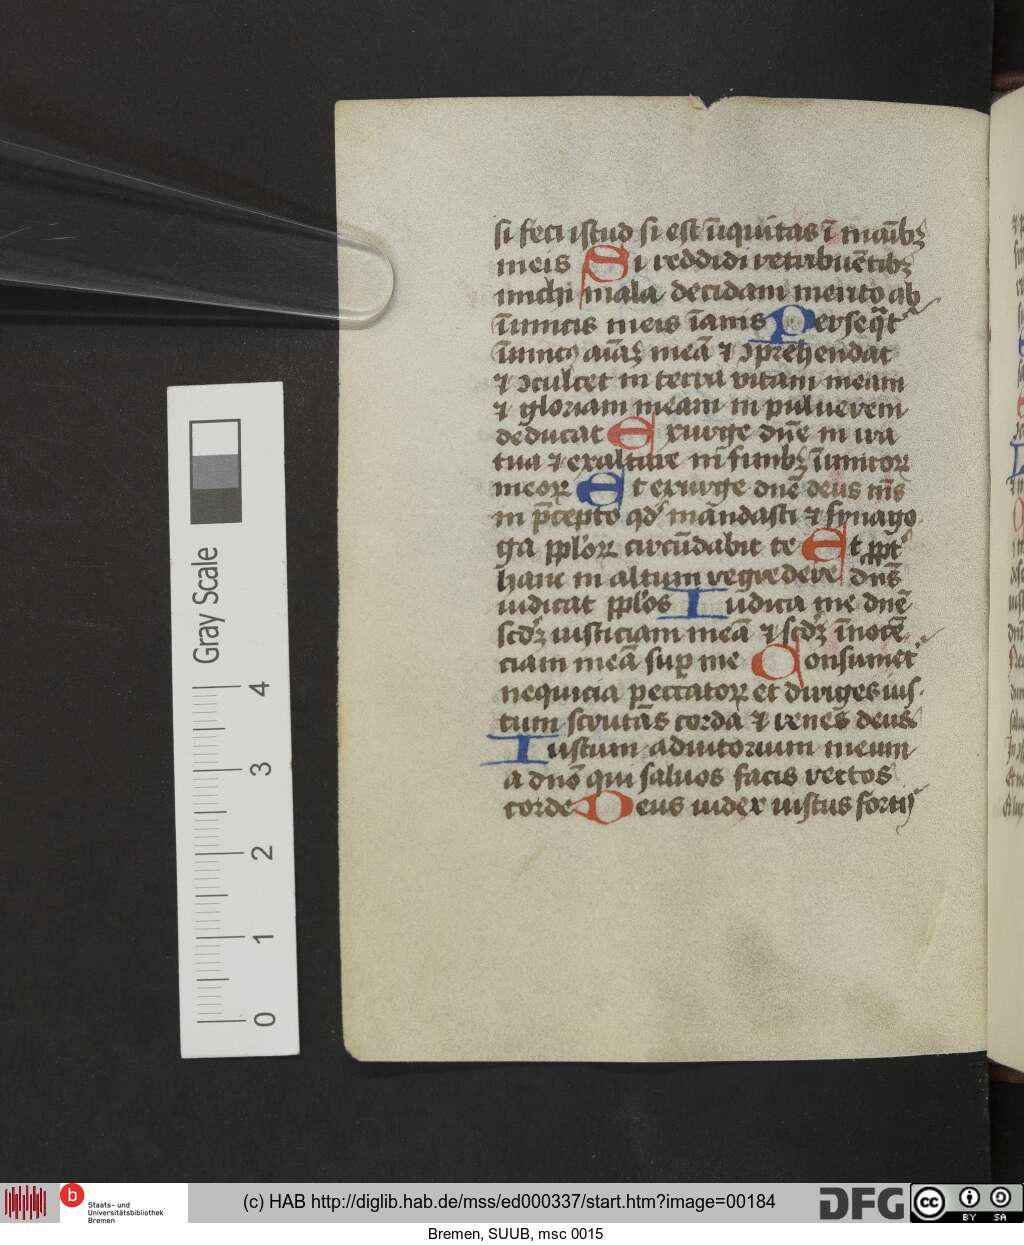 si feci istud si est iĩquitas ĩ maĩbꝫ
meis Si reddidi retribuẽtibꝫ
michi mala decidam merito ab
ĩimicis meis ĩanis Perseq̃t᷑
ĩimicꝰ aĩaꝫ meã ⁊ ɔprehendat
⁊ ɔculcet in terra vitam meam
⁊ gloriam meam in puluerem
deducat Exurge dñe in ira
tua ⁊ exaltare in finibꝫ ĩimicoꝝ
meoꝝ Et exurge dñe deus me᷒s
in p̃cepto qđ mandasti ⁊ synago
ga ppl'oꝝ circũdabit te Et ꝓpt᷑
hanc in altum regredere dñs
iudicat ppl'os Iudica me dñe
scđꝫ iusticiam meã ⁊ scđꝫ ĩnocẽ
ciam meã suꝑ me Consumet᷑
nequicia peccatoꝝ et diriges ius
tum scrutãs corda ⁊ renes deus
Iustum adiutorium meum
a dño qui saluos facis rectos
corde Deus iudex iustus fortis
Gray Scale
4
3
2
1
0
b Staats- und
Universitätsbibliothek
Bremen
(c) HAB http://diglib.hab.de/mss/ed000337/start.htm?image=00184
DFG
cc BY SA
Bremen, SUUB, msc 0015